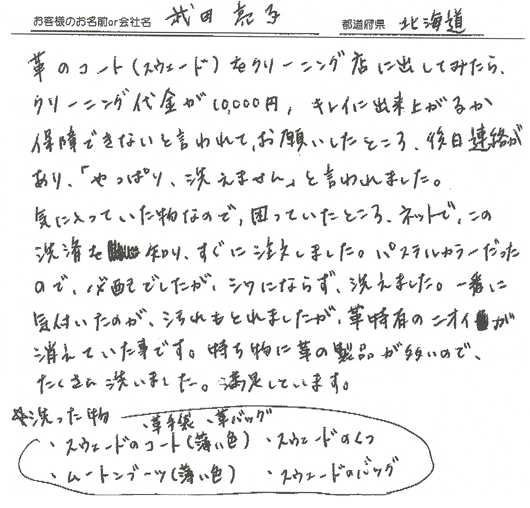 お客様のお名前or会社名 武田 亮子 都道府県 北海道
革のコート（スウェード）をクリーニング店に出してみたら、
クリーニング代金が10,000円，キレイに出来上がるか
保障できないと言われて、お願いしたところ、後日連絡が
あり、「やっぱり、洗えません」と言われました。
気に入っていた物なので，困っていたところ、ネットで、この
洗済を知り、すぐに注文しました。パステルカラーだった
ので、心配でしたが、シワにならず、洗えました。一番に
気付いたのが、汚れもとれましたが、革特有のニオイが
消えていた事です。持ち物に革の製品が多いので、
たくさん洗いました。満足しています。
☆洗った物 ・革手袋 ・革バッグ
・スウェードのコート（薄い色） ・スウェードのくつ
・ムートンブーツ（薄い色） ・スウェードのバッグ